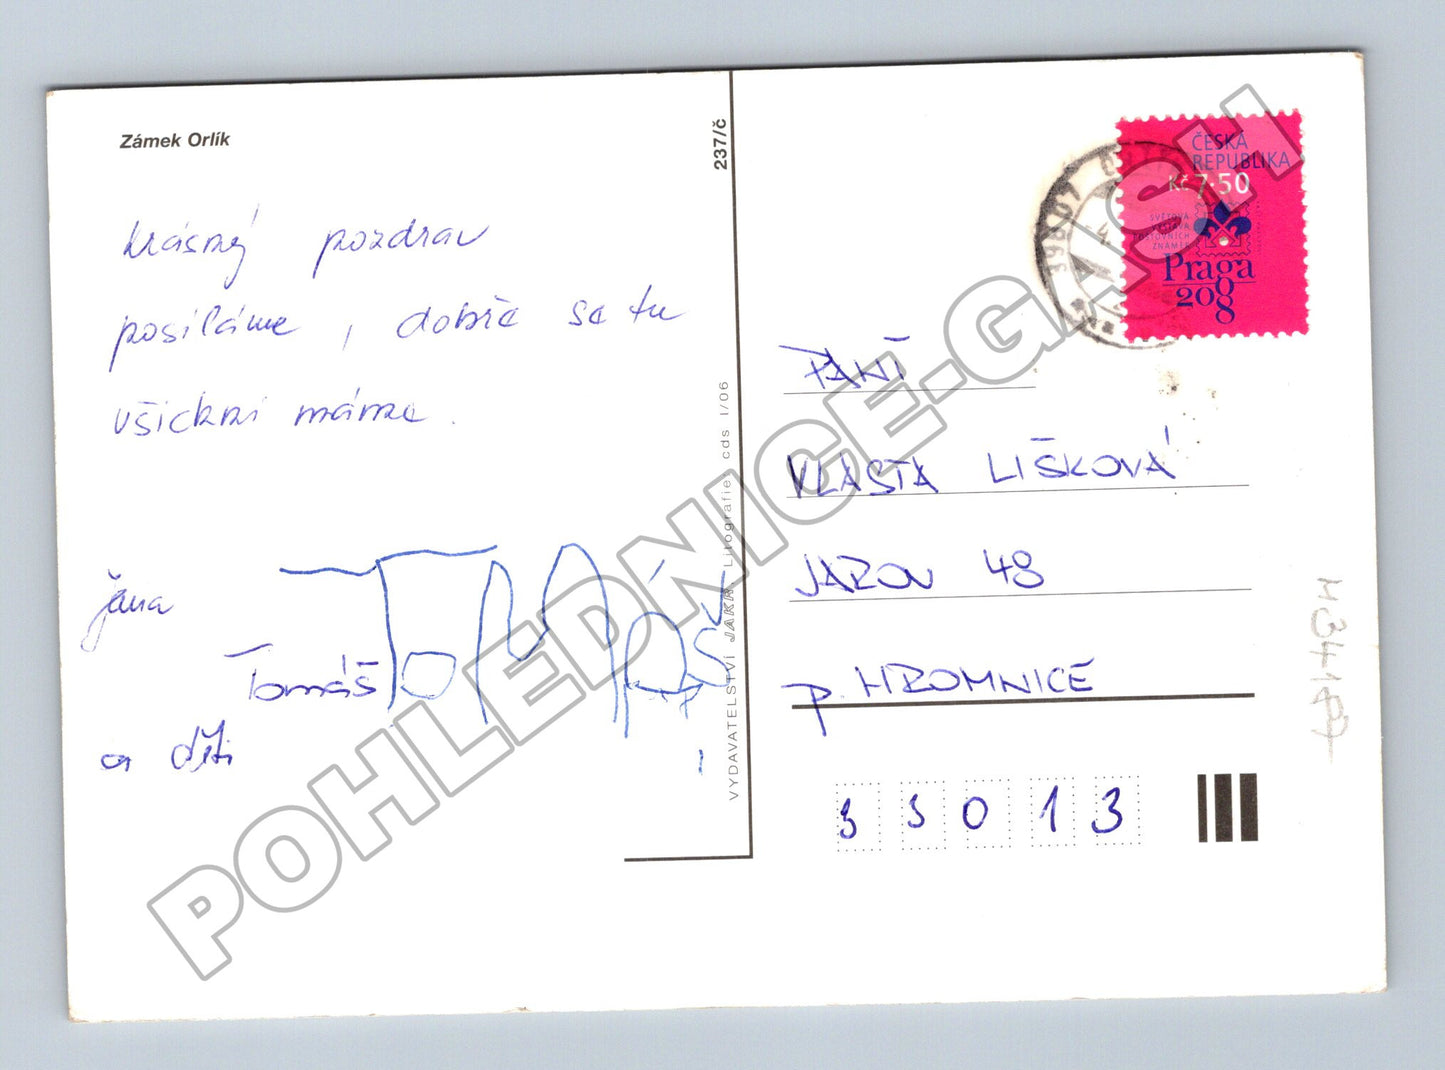 Zámek Orlík
237/č
krásný pozdrav
posíláme, dobře se tu
všichni máme.
Jana
Tomáš
TOMÁŠ
a děti
VYDAVATELSTVÍ JAKR, Litografie: cds I/06
ČESKÁ
REPUBLIKA
Kč 7·50
SVĚTOVÁ
VÝSTAVA
POŠTOVNÍCH
ZNÁMEK
Praga
2008
398 07
PANÍ
VLASTA LIŠKOVÁ
JAROV 48
P. HROMNICE
33013
POHLEDNICE-GASH